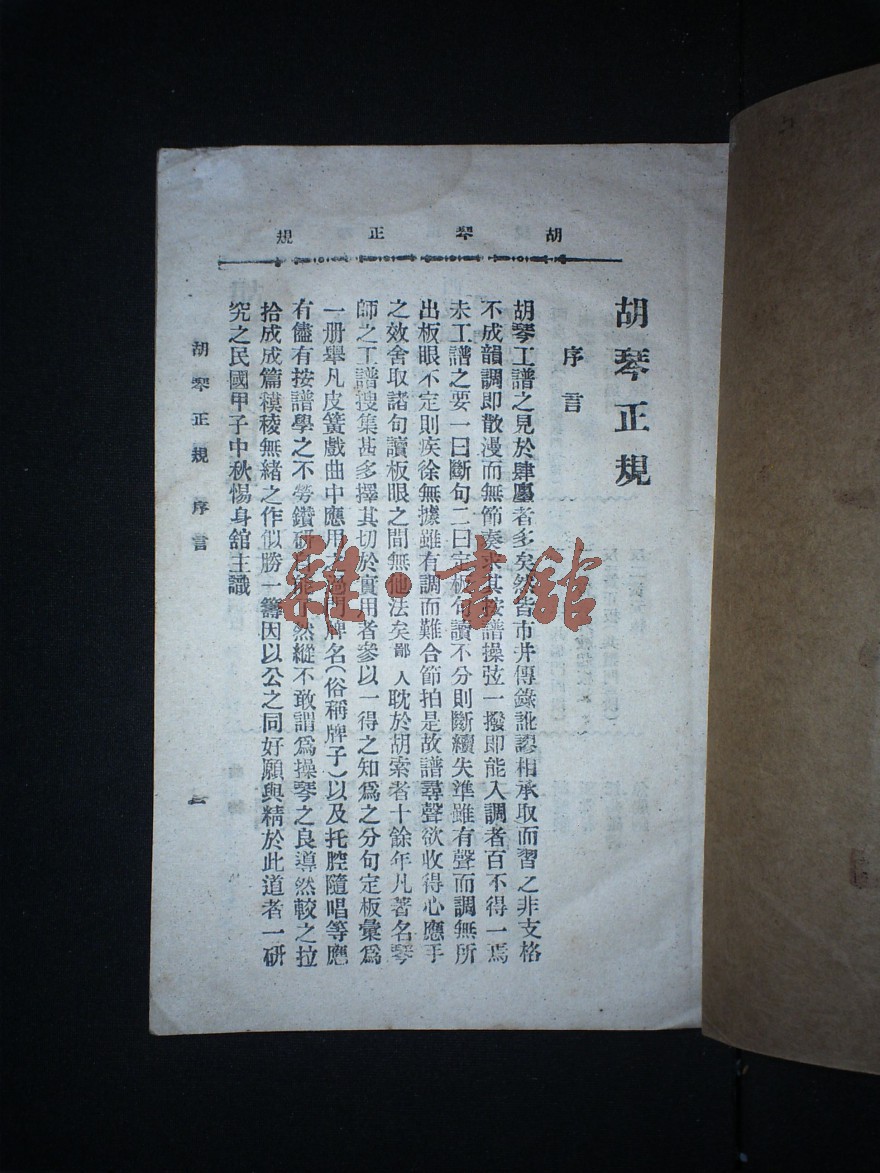 胡琴正規
胡琴正規
序言
胡琴工譜之見於肆廛者多矣然皆市井傳錄訛謬相承取而習之非支格
不成韻調即散漫而無節奏求其按譜操弦一撥即能入調者百不得一焉
未工譜之要一曰斷句二曰定板句讀不分則斷續失準雖有聲而調無所
出板眼不定則疾徐無據雖有調而難合節拍是故譜尋聲欲收得心應手
之效舍取諸句讀板眼之間無他法矣鄙人耽於胡索者十餘年凡著名琴
師之工譜搜集甚多擇其切於實用者參以一得之知爲之分句定板彙爲
一册舉凡皮簧戲曲中應用之過門牌名(俗稱牌子)以及托腔隨唱等應
有儘有按譜學之不勞鑽研自能 然縱不敢謂爲操琴之良導然較之拉
拾成成篇模稜無緒之作似勝一籌因以公之同好願與精於此道者一研
究之民國甲子中秋惕身舘主識
胡琴正規 序言
一
雜·書舘